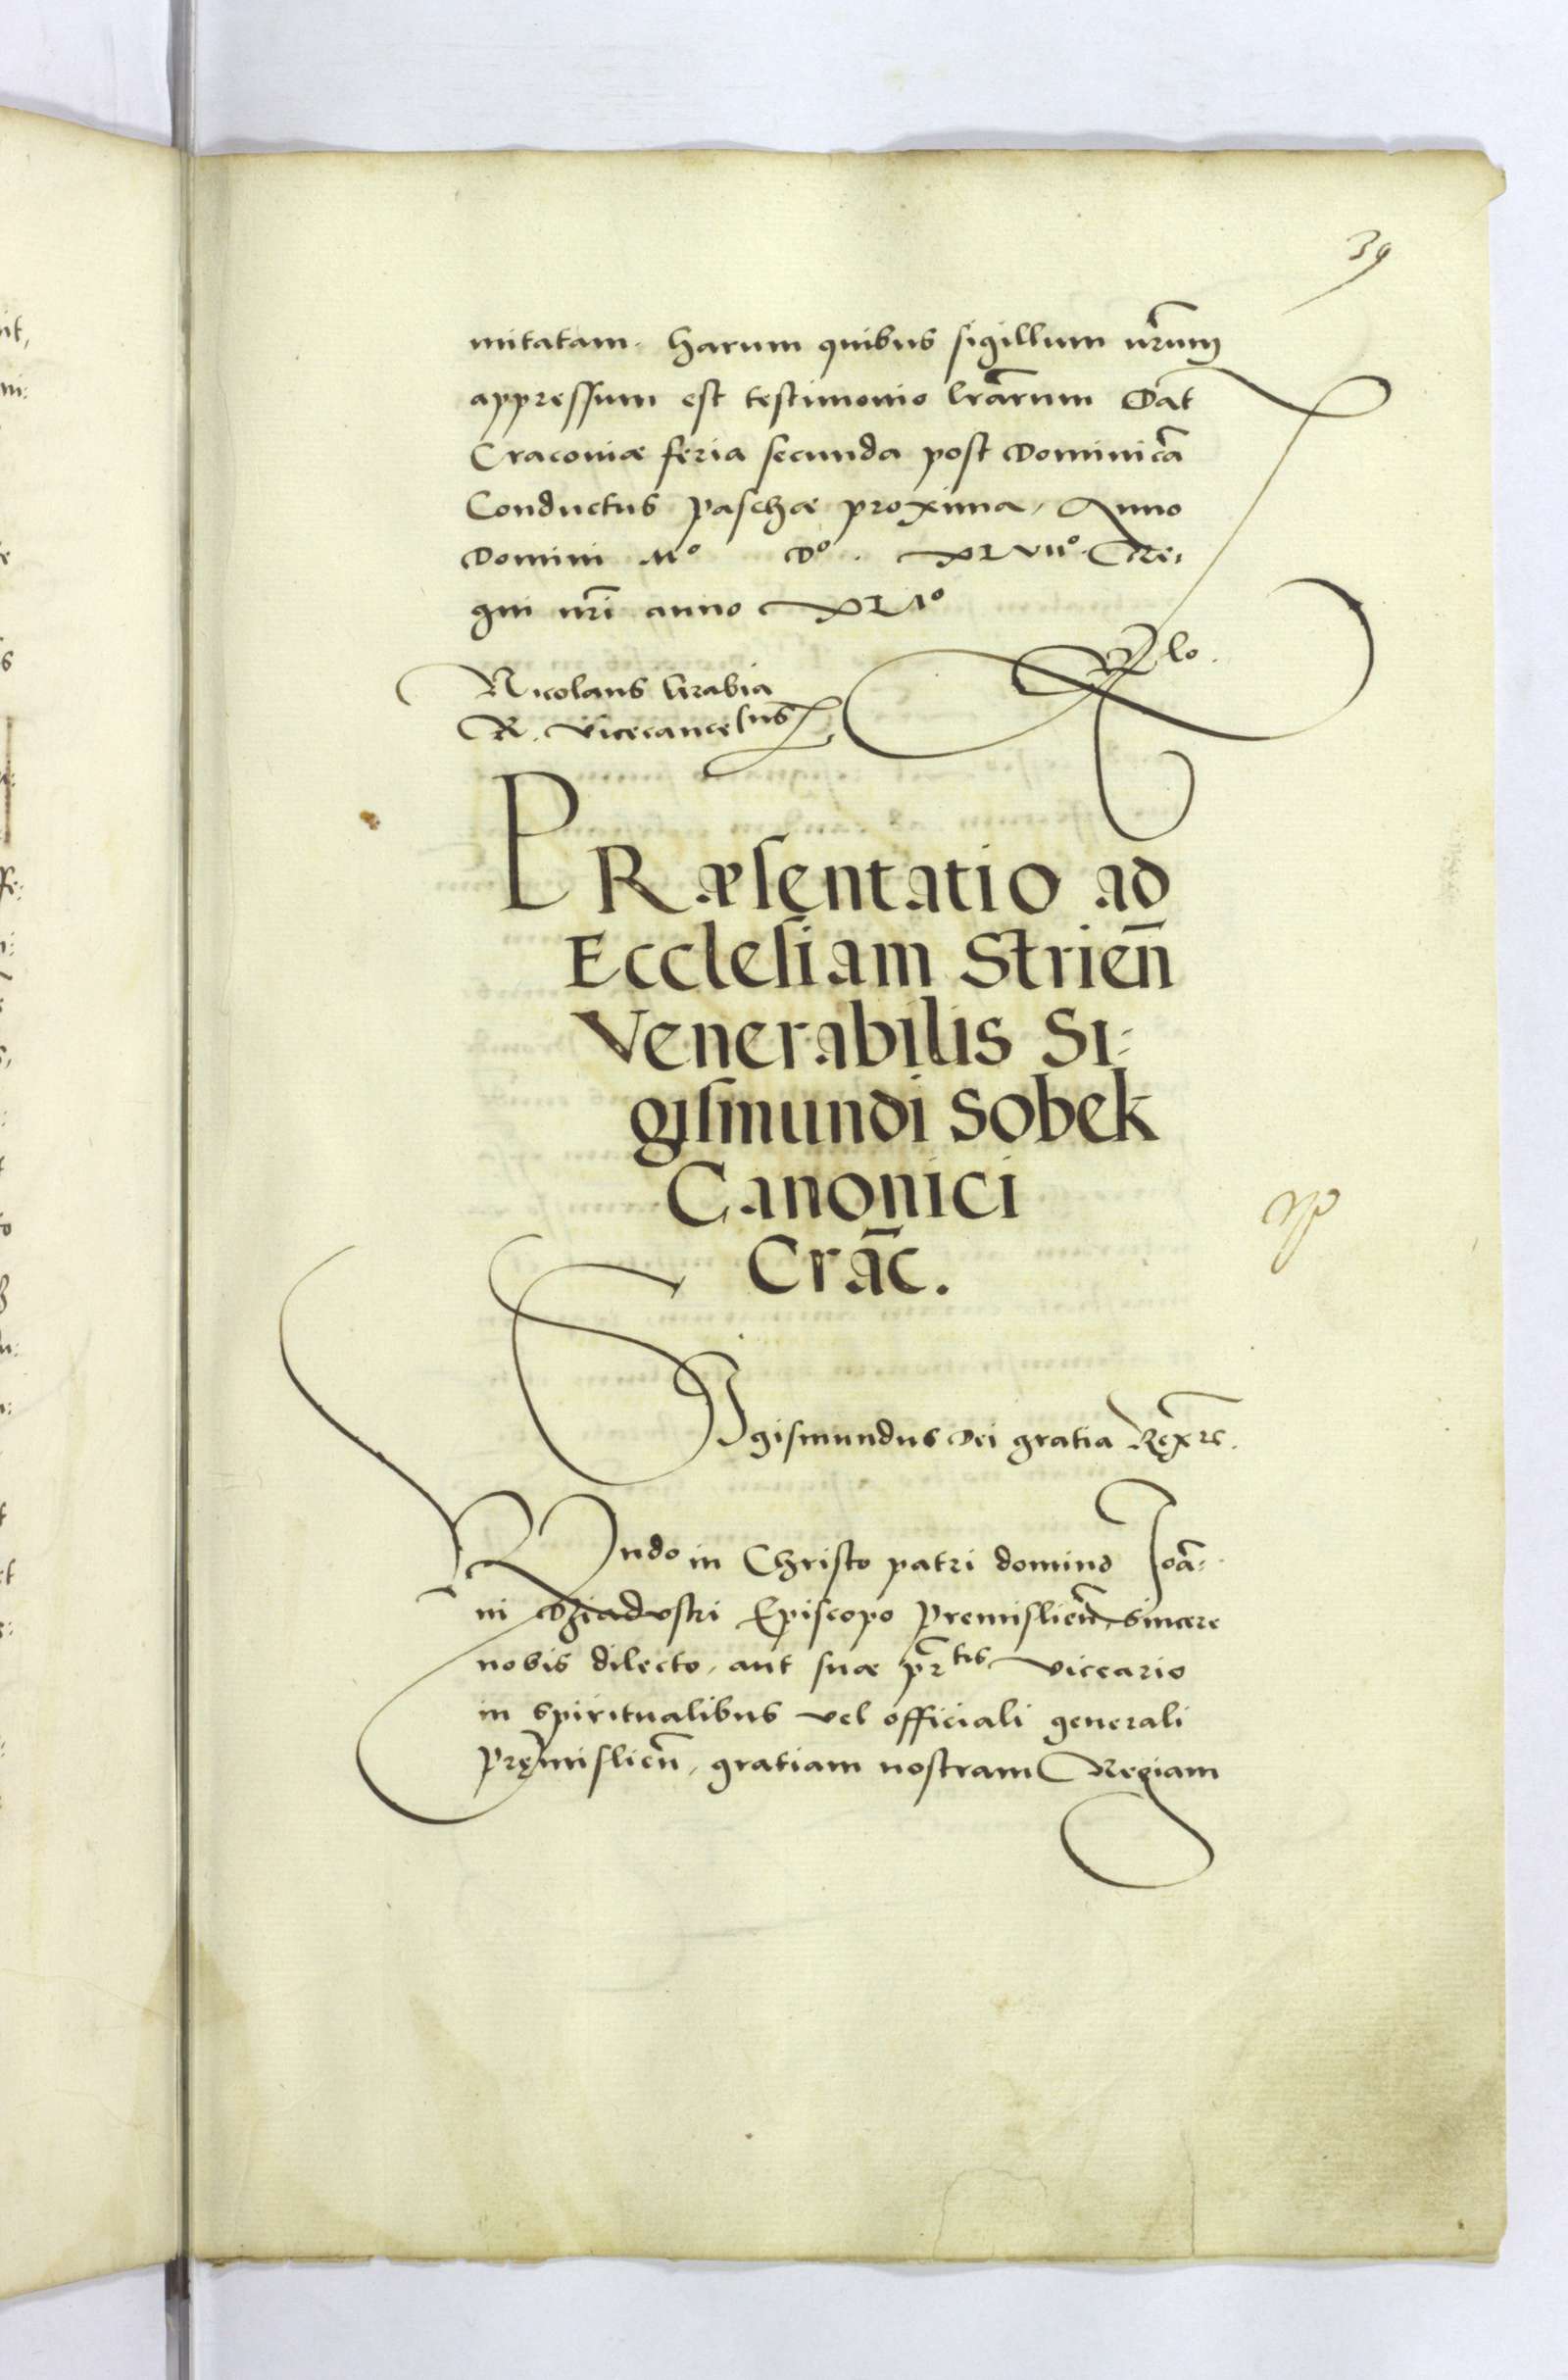 39
mitatam. harum quibus sigillum nrum
appressum est testimonio lrarum Dat
Cracoviæ feria secunda post Dominicā
Conductus Paschæ proxima, Anno
Domini Mº Dº. XLVIIº. Re:
gni nri anno XLIº
Rlo.
Nicolaus Grabia
R. Vicecancellus
PRæsentatio ad
Ecclesiam Strien̄
Venerabilis Si:
gismundi Sobek
Canonici
Crāc.
SIgismundus Dei gratia Rex rc.
Rndo in Christo patri domino Joā:
ni Dziaduski Episcopo Premislien̄, sincere
nobis dilecto, aut suæ prtis vicario
in spiritualibus vel officiali generali
Pręmislien̄, gratiam nostram Regiam